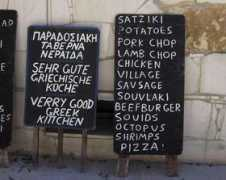 ΠΑΡΑΔΟΣΙΑΚΗ
ΤΑΒΕΡΝΑ
ΝΕΡΑΪΔΑ
SEHR GUTE
GRIECHISCHE
KÜCHE
VERRY GOOD
GREEK
KITTCHEN
SATZIKI
POTATOES
PORK CHOP
LAMB CHOP
CHICKEN
VILLAGE
SAUSAGE
SOUVLAKI
BEEFBURGER
SQUIDS
OCTOPUS
SHRIMPS
PIZZA!